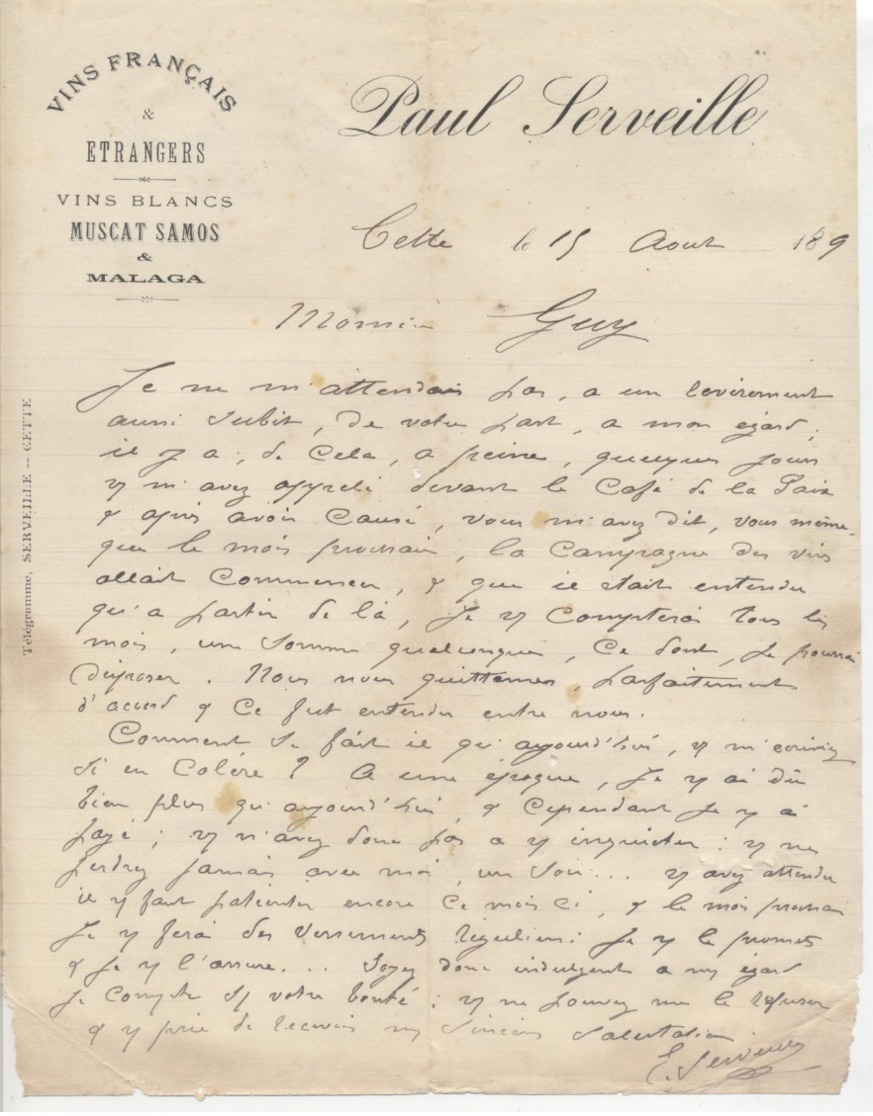 VINS FRANÇAIS
&
ETRANGERS
VINS BLANCS
MUSCAT SAMOS
&
MALAGA
Paul Serveille
Cette le 15 Aout 189
Télégramme, SERVEILLE -- CETTE
Monsieur Guy
Je ne m'attendais pas, a un revirement
aussi subit, de votre part, a mon égard;
il y a, de cela, a peine, quelques jours
v m'avez appelé devant le Café de la Paix
& après avoir causé, vous m'avez dit, vous même,
que le mois prochain, la Campagne des vins
allait Commencer, & que il était entendu
qu'a partir de là, Je v Compterai tous les
mois, une Somme quelconque, Ce dont, Je pourrai
disposer. Nous nous quittames, parfaitement
d'accord & Ce fut entendu entre nous.
Comment se fait il qu'aujourd'hui, v m'écriviez
si en Colère ? A une époque, Je v ai dû
bien plus qu'aujourd'hui, & Cependant Je v ai
payé; v n'avez donc pas a v inquiéter: v ne
perdrez jamais avec moi, un Sou... v avez attendu
il v faut patienter encore Ce mois ci, & le mois prochain
Je v ferai des Versements réguliers: Je v le promets
& Je v l'assure... Soyez donc indulgent a mon égard
Je Compte sur votre bonté: v ne pouvez me le refuser
& v prie de recevoir mes Sincères Salutations
E. Serveille